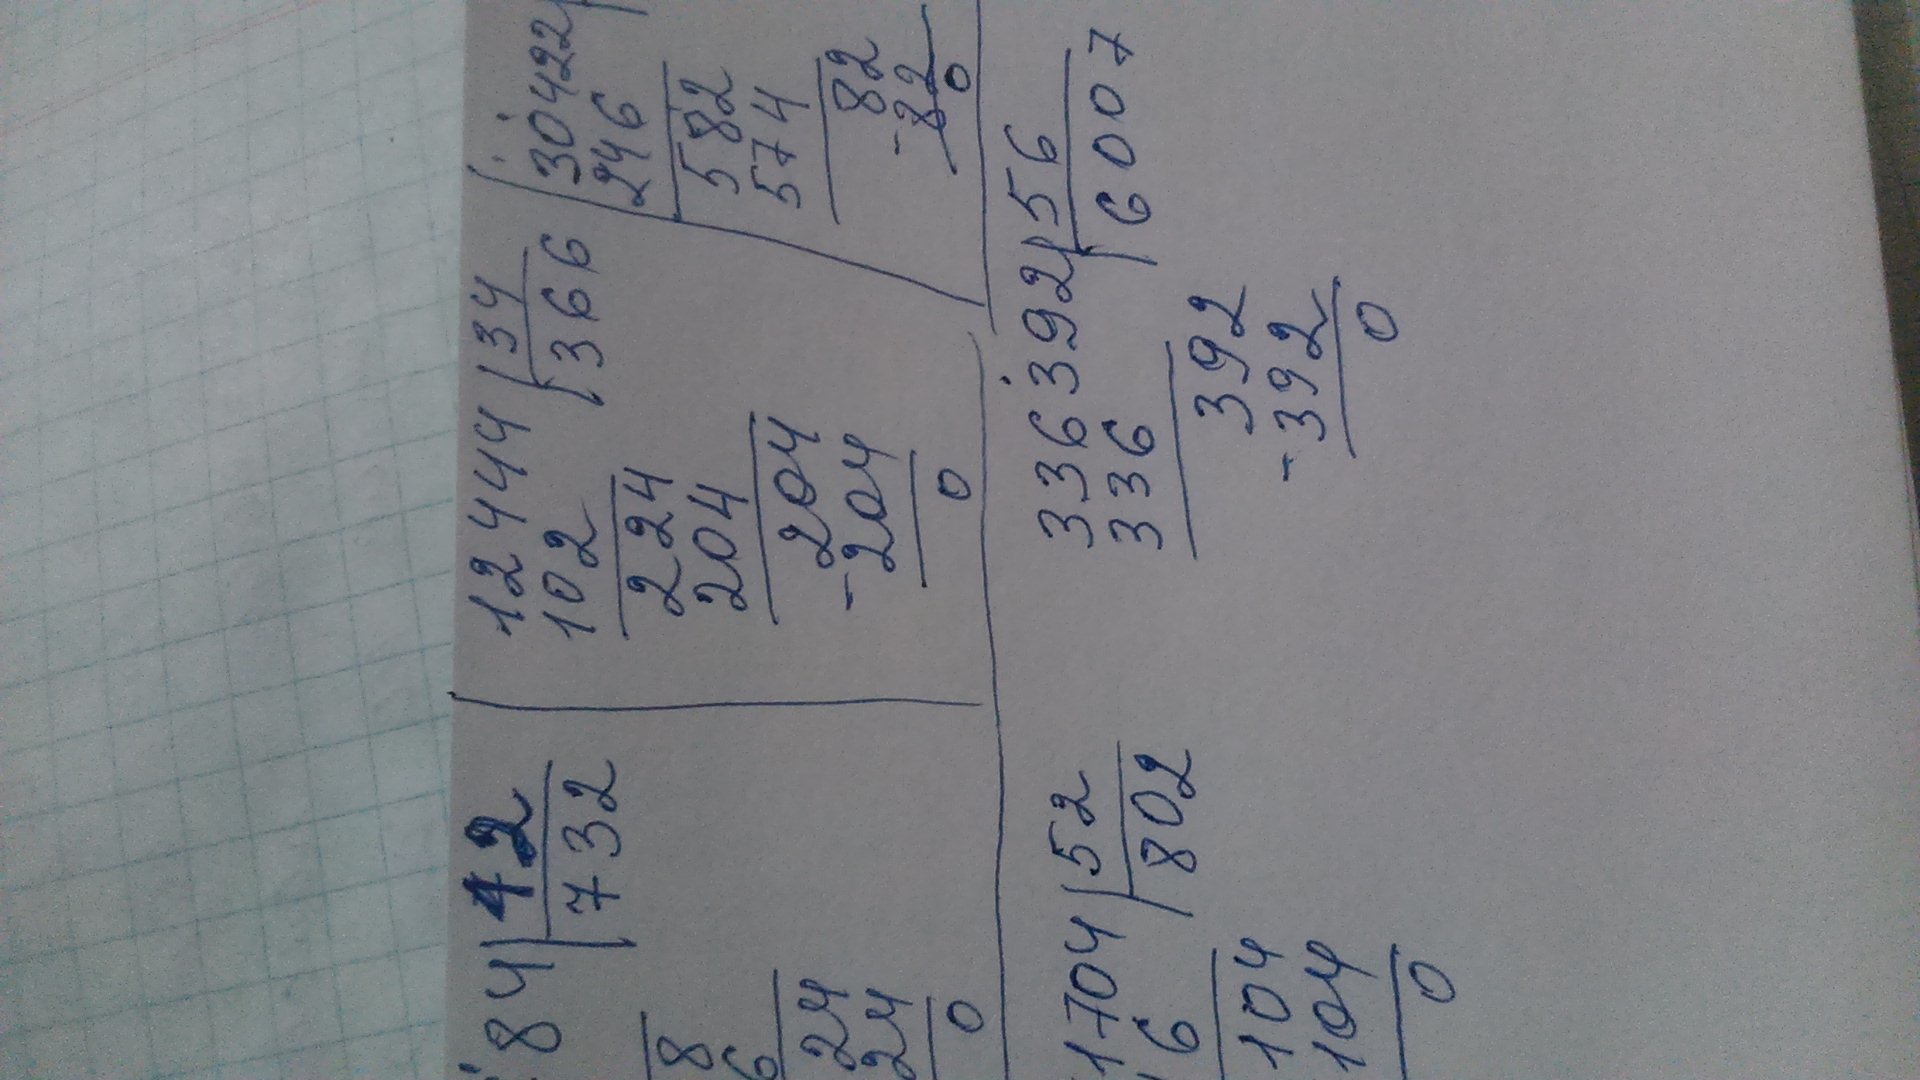 84 42
732
8
6
24
24
0
12444 34
102 366
224
204
204
-204
0
30422
246
582
574
82
-82
0
1704 52
6 802
104
104
0
336392 56
336 6007
392
-392
0